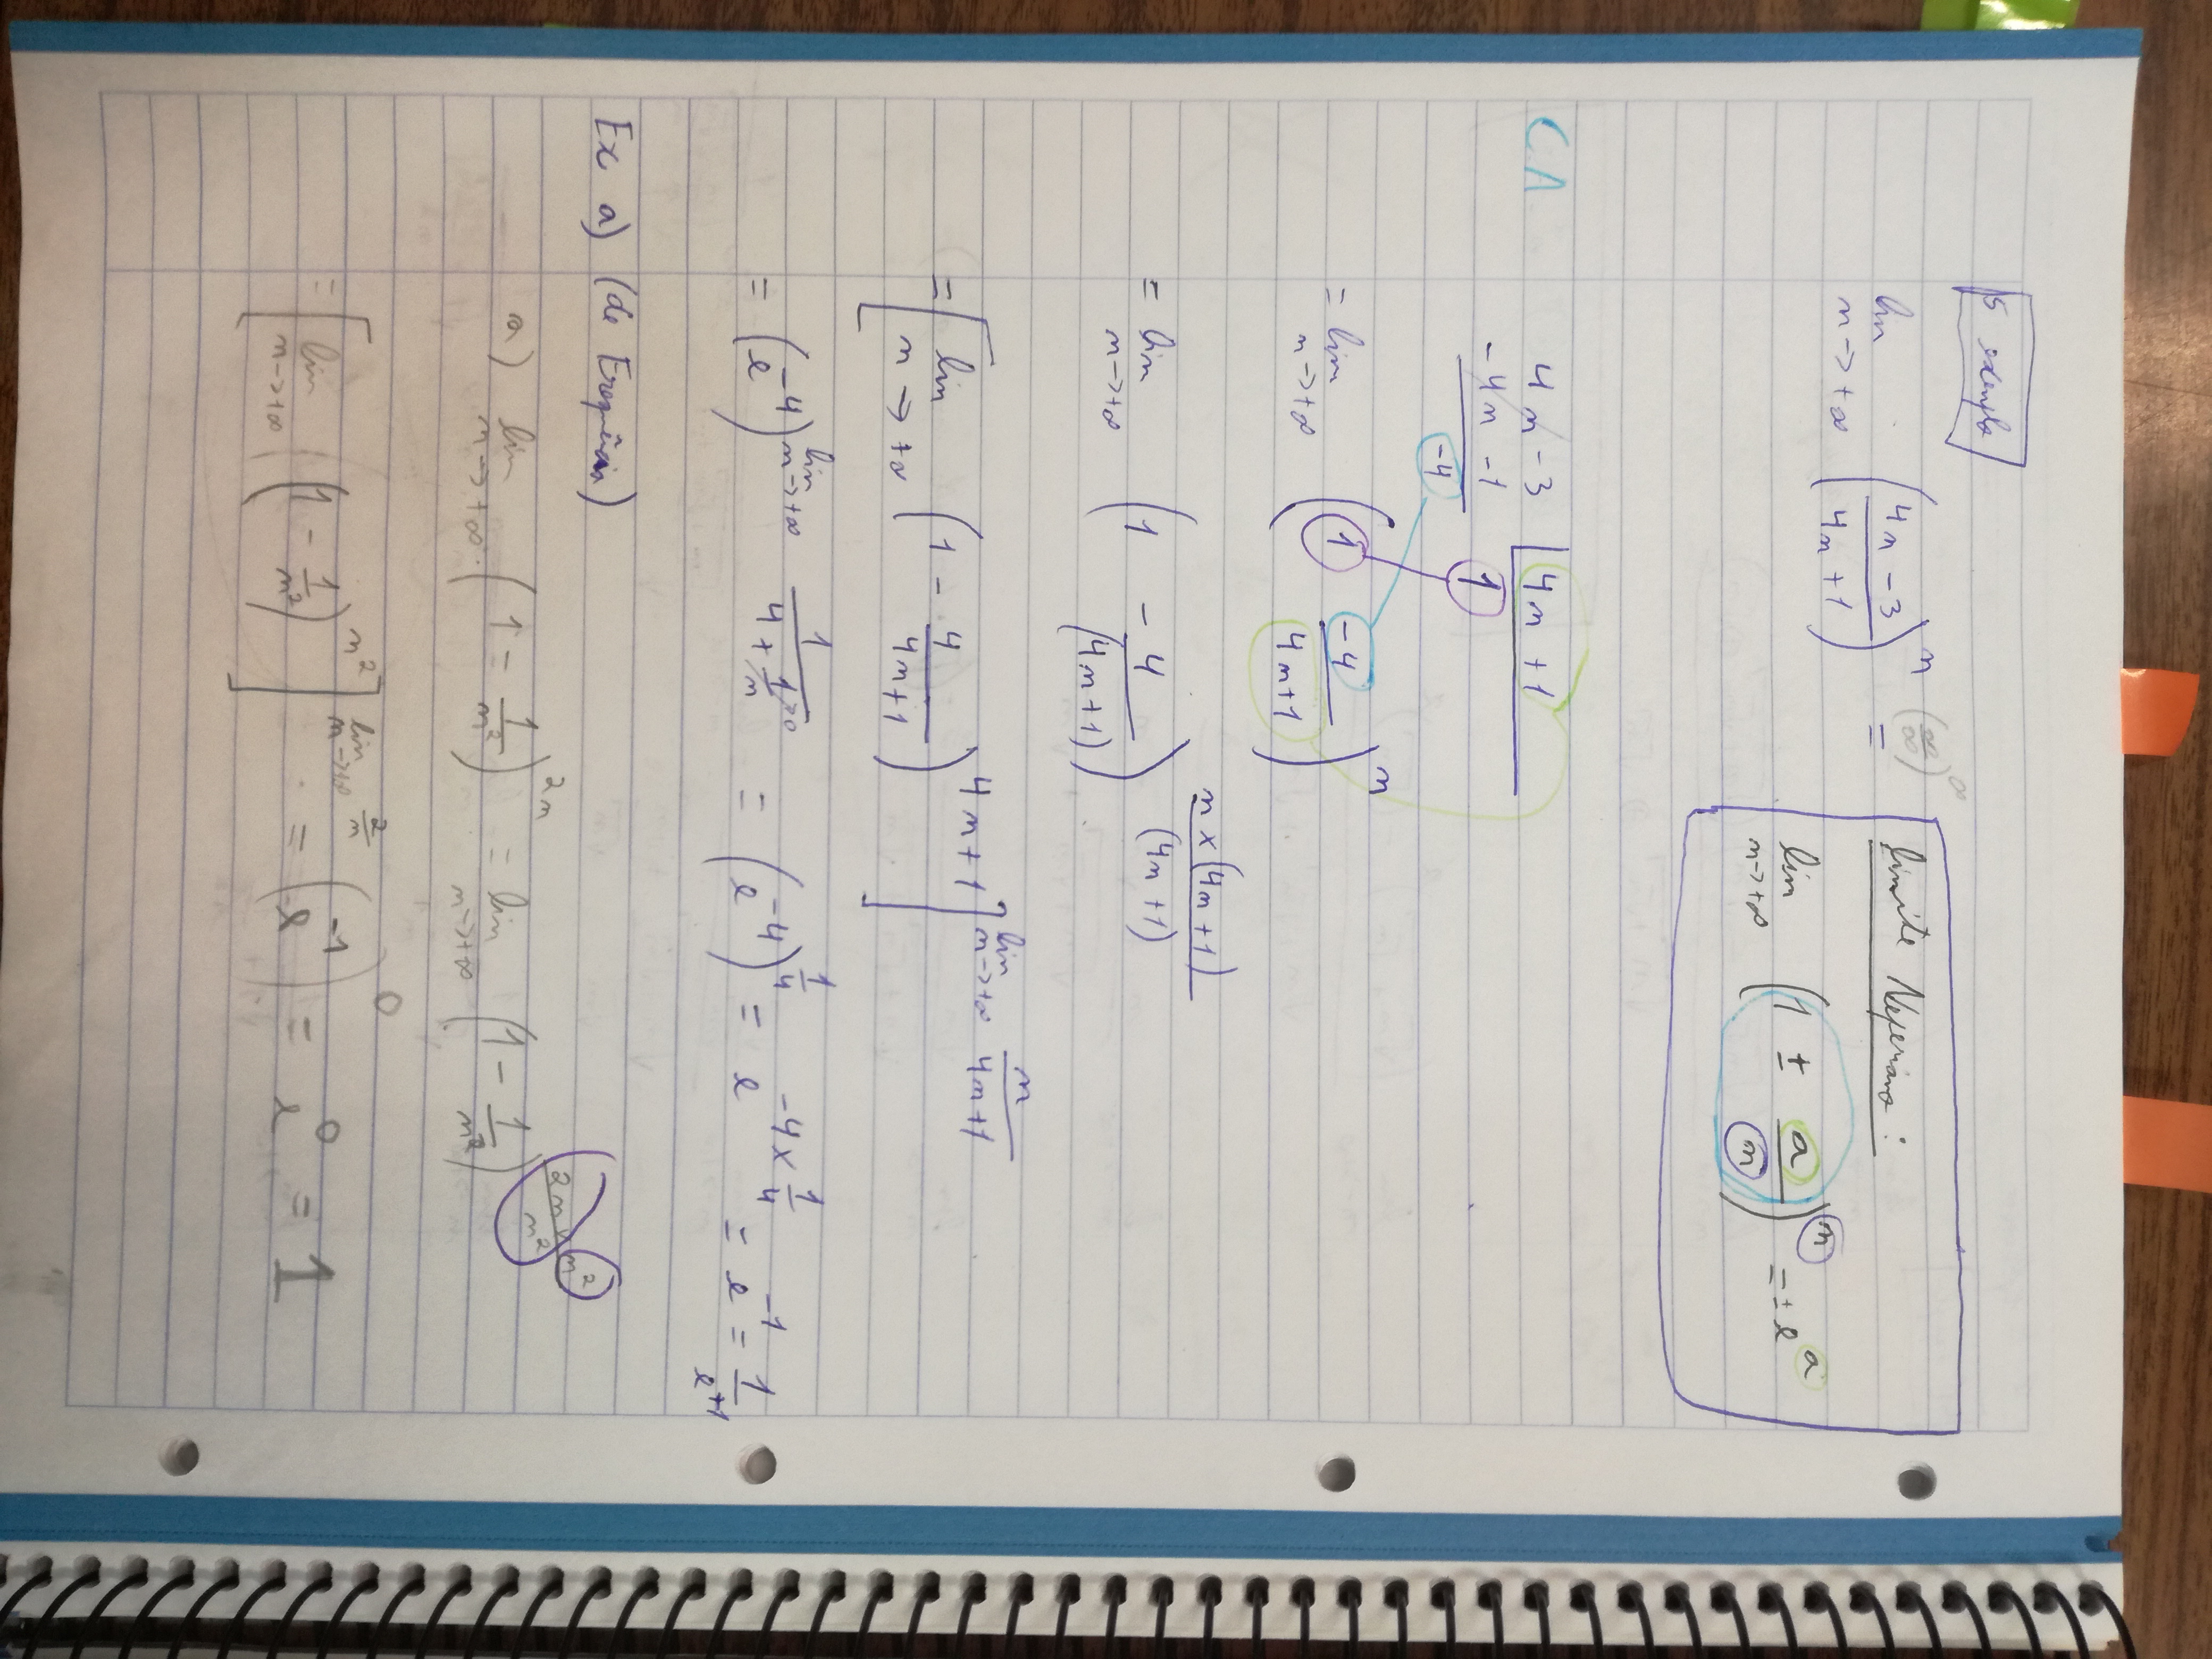 5 exemplo
lim n->+∞ (4n-3 / 4n+1)^n = (∞/∞)^∞
Limite Neperiano:
lim n->+∞ (1 ± a/n)^n = ± e^a
CA
4n - 3 | 4n + 1
-4n - 1   1
-4
= lim n->+∞ (1 -4/4n+1)^n
= lim n->+∞ (1 -4/(4n+1))^(n x (4n+1)/(4n+1))
= [lim n->+∞ (1 - 4/4n+1)^4n+1]^(lim n->+∞ n/4n+1)
= (e^-4)^(lim n->+∞ 1/(4+1/n->0)) = (e^-4)^1/4 = e^(-4x1/4) = e^-1 = 1/e^+1
Ex a) (de Erequência)
a) lim n->+∞ (1 - 1/n²)^2n = lim n->+∞ (1 - 1/n²)^(2n/n² x n²)
= [lim n->+∞ (1 - 1/n²)^n²]^(lim n->+∞ 2/n) = (e^-1)^0 = e^0 = 1